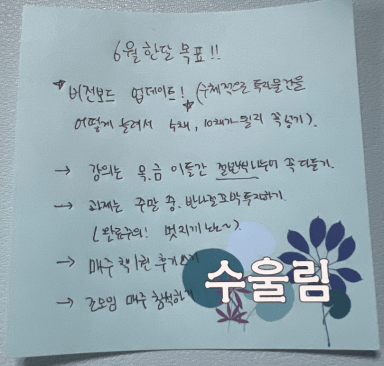 6월 한달 목표!!
비전보드 업데이트! (구체적으로 투자물건을
어떻게 늘려서 5채, 10채가 될지 꼭 넣기).
→ 강의는 목,금 이틀간 절반씩 나누어 꼭 다듣기.
→ 과제는 주말 중. 반나절 꼬박 투자하기.
(완료주의! 멋지게 No~)
→ 매주 책 1권 후기쓰기
→ 조모임 매주 참석하기
수울림